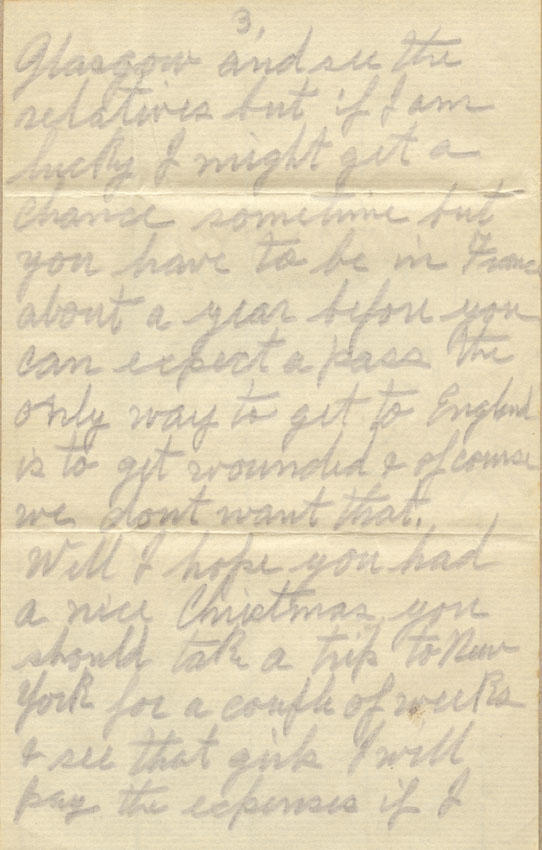 3,
Glasgow and see the
relatives but if I am
lucky I might get a
chance sometime but
you have to be in France
about a year before you
can expect a pass the
only way to get to England
is to get wounded & of course
we dont want that.
Well I hope you had
a nice Christmas you
should take a trip to New
York for a couple of weeks
& see that girls I will
pay the expenses if I